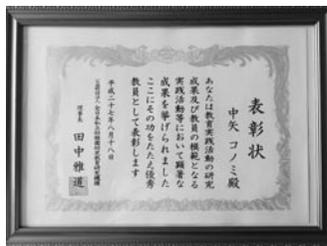 表彰状
中矢 コノミ殿
あなたは教育実践活動の研究
成果及び教員の模範となる
実践活動等において顕著な
成果を挙げられました
ここにその功をたたえ優秀
教員として表彰します
平成二十七年八月十八日
理事長 田中雅道